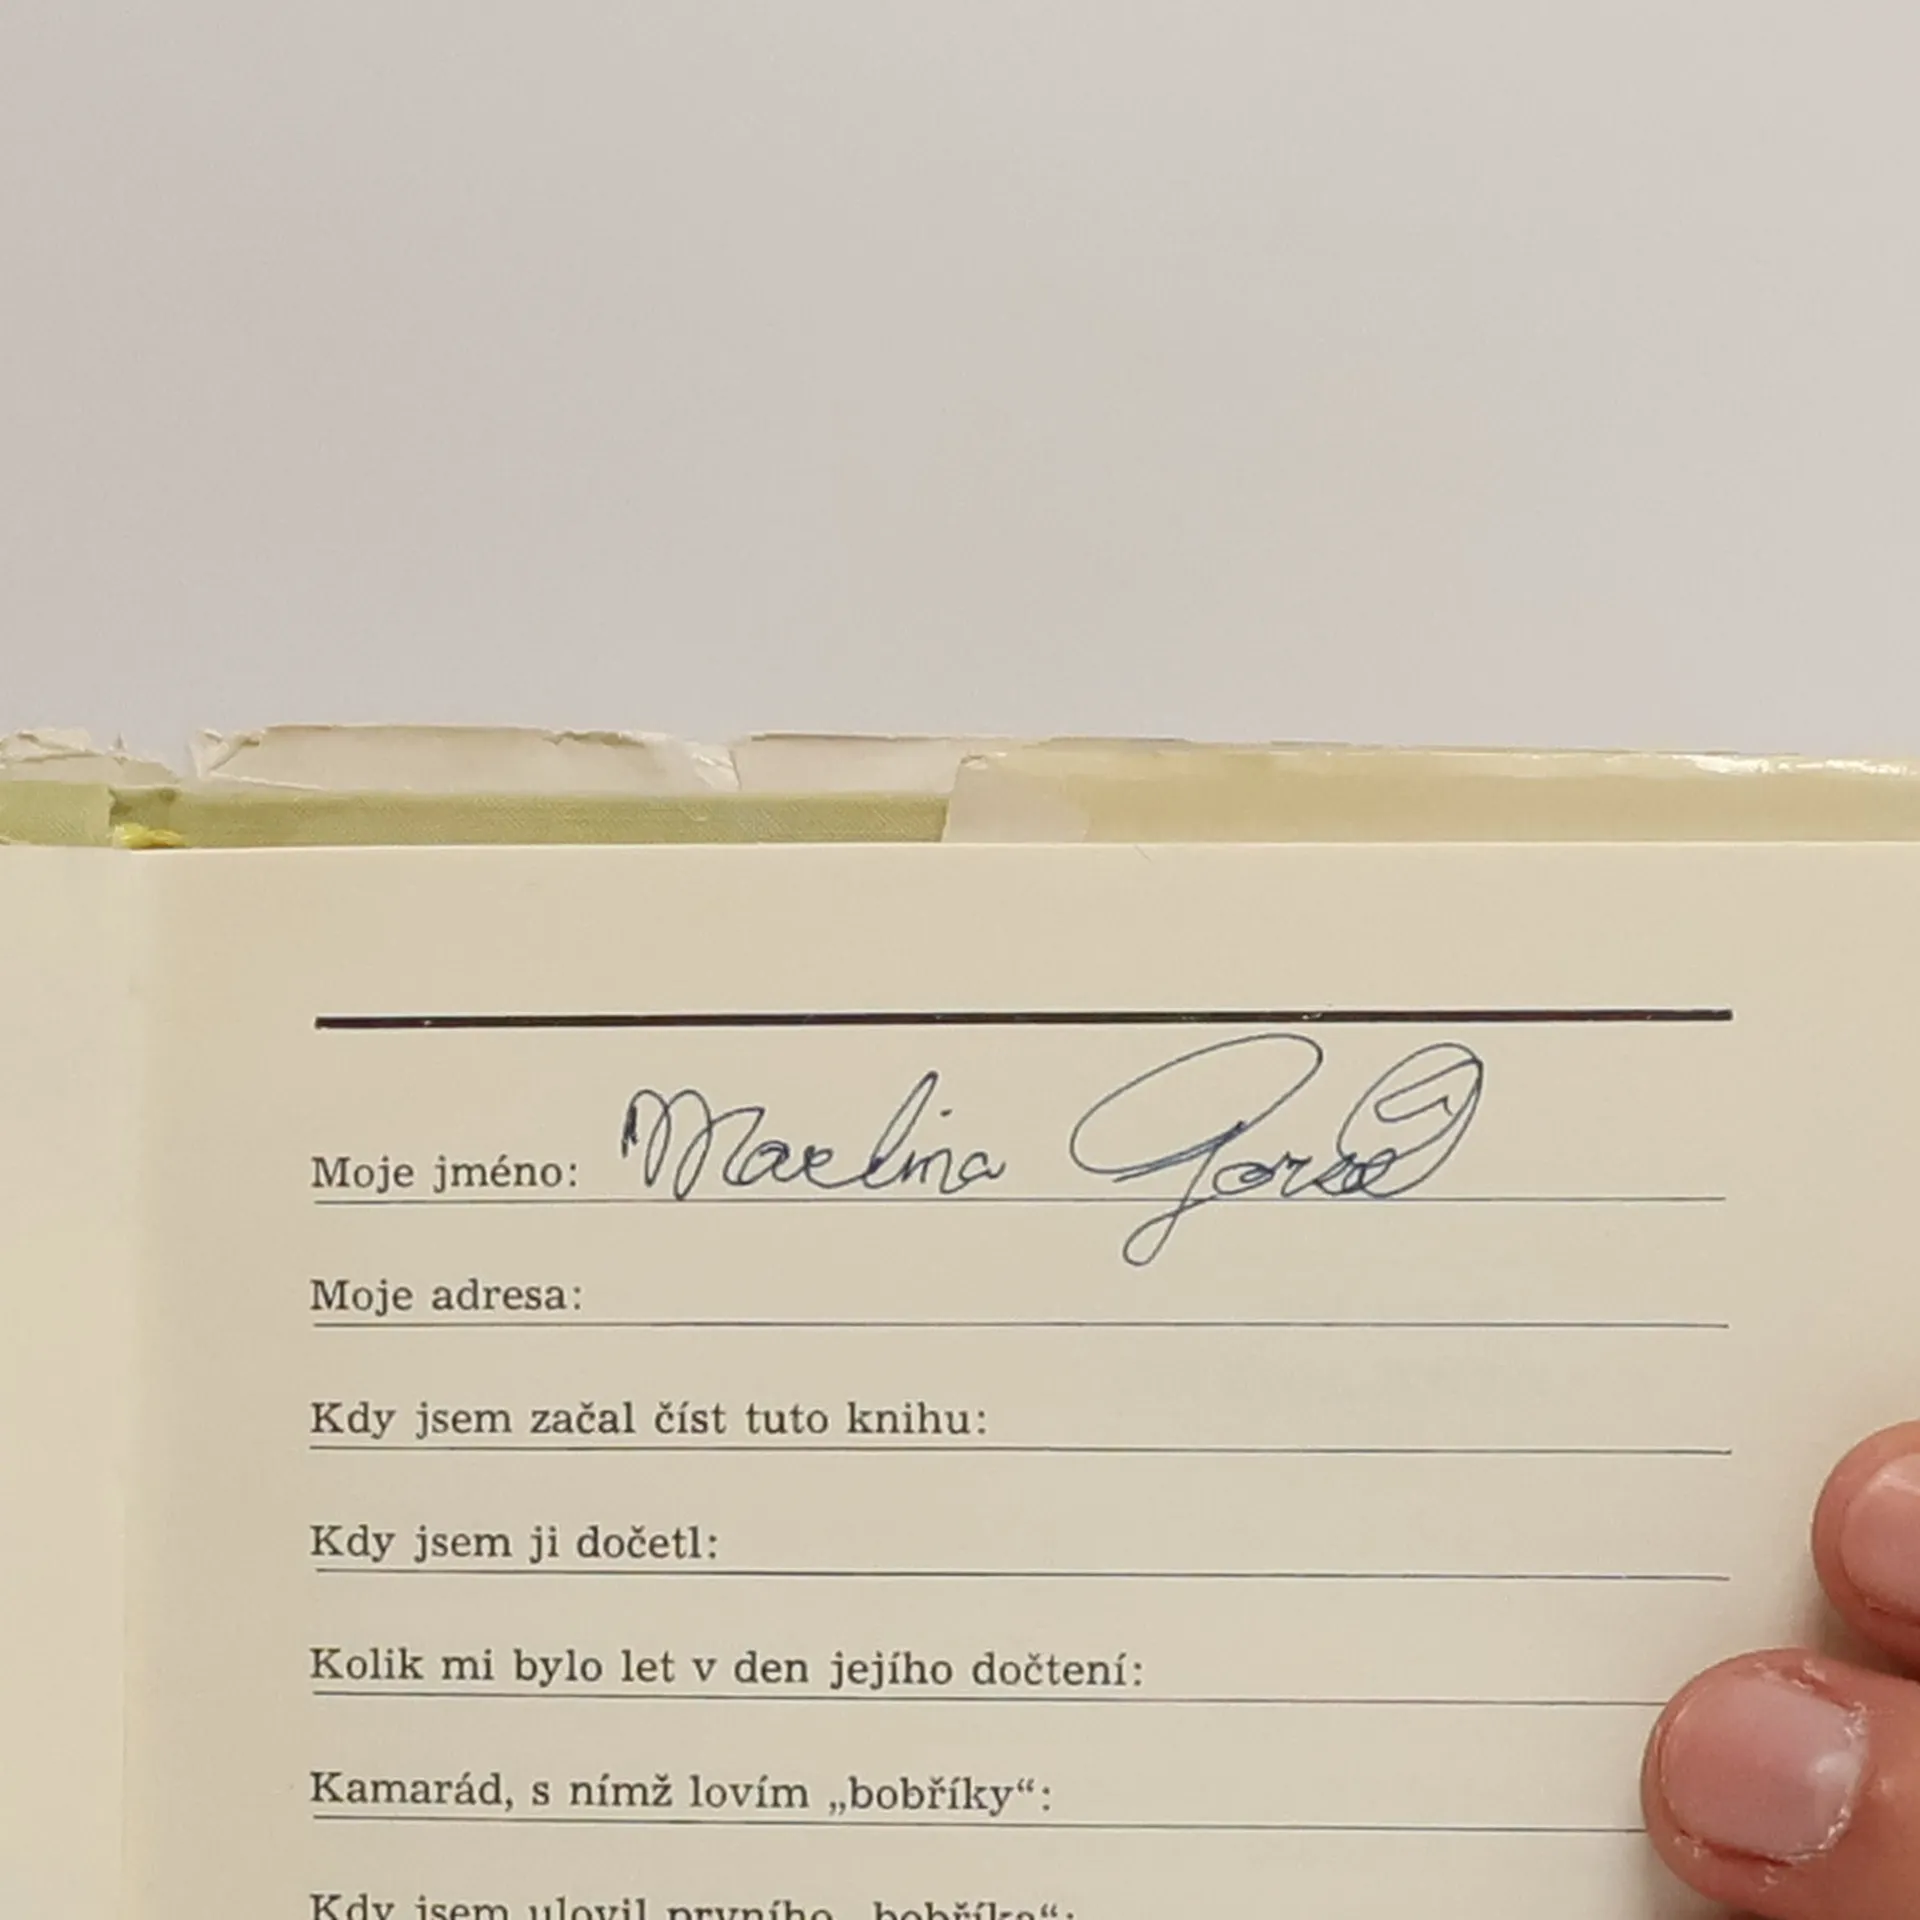 Moje jméno: Marlina
Moje adresa:
Kdy jsem začal číst tuto knihu:
Kdy jsem ji dočetl:
Kolik mi bylo let v den jejího dočtení:
Kamarád, s nímž lovím „bobříky“:
Kdy jsem ulovil prvního „bobříka“: